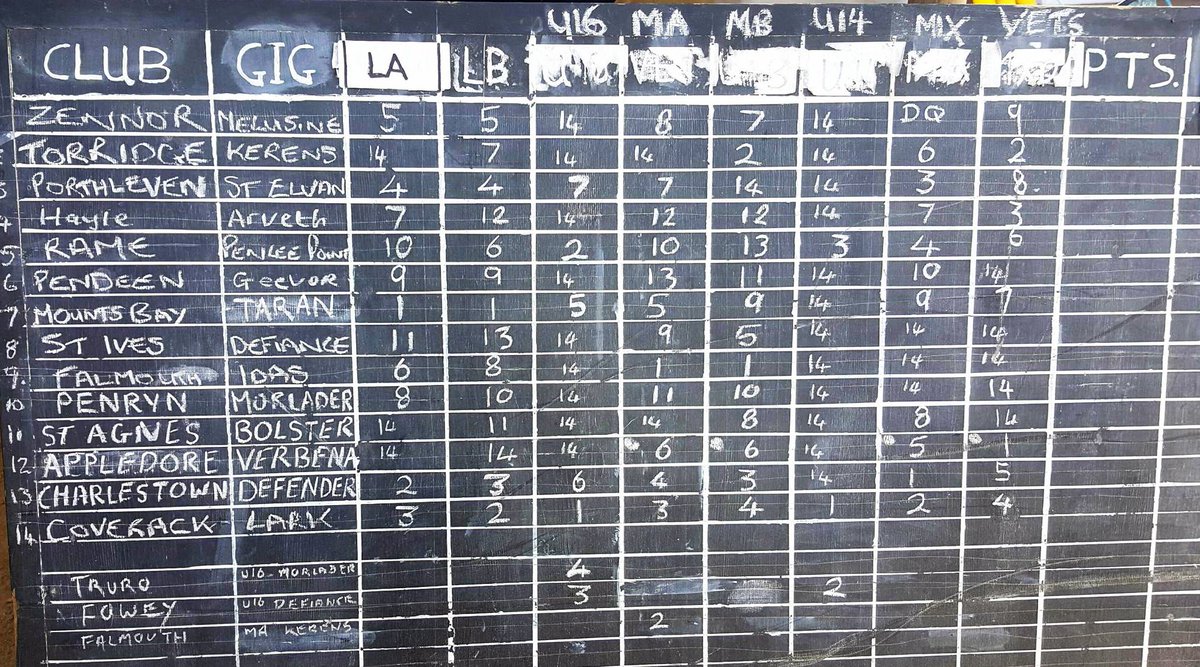 U16 MA MB U14 MIX VETS
CLUB GIG LA LB PTS.
ZENNOR MELUSINE 5 5 14 8 7 14 DQ 9
TORRIDGE KERENS 14 7 14 14 2 14 6 2
PORTHLEVEN ST ELVAN 4 4 7 7 14 14 3 8
4 Hayle Arveth 7 12 14 12 12 14 7 3
5 RAME PENLEE POINT 10 6 2 10 13 3 4 6
6 PENDEEN Geevor 9 9 14 13 11 14 10 14
7 MOUNTS BAY TARAN 1 1 5 5 9 14 9 7
8 ST IVES DEFIANCE 11 13 14 9 5 14 14 14
9. FALMOUTH IDAS 6 8 14 1 1 14 14 14
10 PENRYN MORLADER 8 10 14 11 10 14 14 14
11 ST AGNES BOLSTER 14 11 14 14 8 14 8 14
12 APPLEDORE VERBENA 14 14 14 6 6 14 5 1
13 CHARLESTOWN DEFENDER 2 3 6 4 3 14 1 5
14 COVERACK LARK 3 2 1 3 4 1 2 4
TRURO U16-MORLADER 4
FOWEY U16 DEFIANCE 3 2
FALMOUTH MA KERENS 2